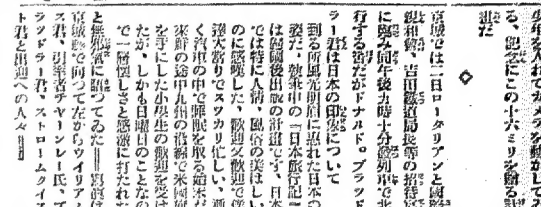 少年を入れてカメラを動かしてみ
る、記念にこの十六ミリを贈る計
畫だ
◇
京城では二日ロータリアンと國際
親和會、吉田鐵道局長等の招待宴
に臨み同午後九時十分發列車で北
行する筈だがドナルド。ブラッド
ラー君は日本の印象について
到る所風光明眉に惠れた日本の
姿だ、執筆中の「日本旅行記」
は歸國後出版の計畫です、日本
では特に人情、風俗の美はしい
のに感嘆した、歡迎又歡迎で僕
達大當りでスツカリ忙しい、漸
く汽車の中で睡眠を取る始末だ
來鮮の途中九州の沿線で米國旗
を手にした小學生の歡迎を受け
たが、しかも日曜日のことなの
で一層懷しさと感激に打たれた
と無邪氣に語つてゐた＝寫眞は
京城驛で向つて左からウイリアム
ス君、引率者チヤーンレー氏、ブ
ラツドラー君、ストロームクイス
ト君と出迎への人々＝